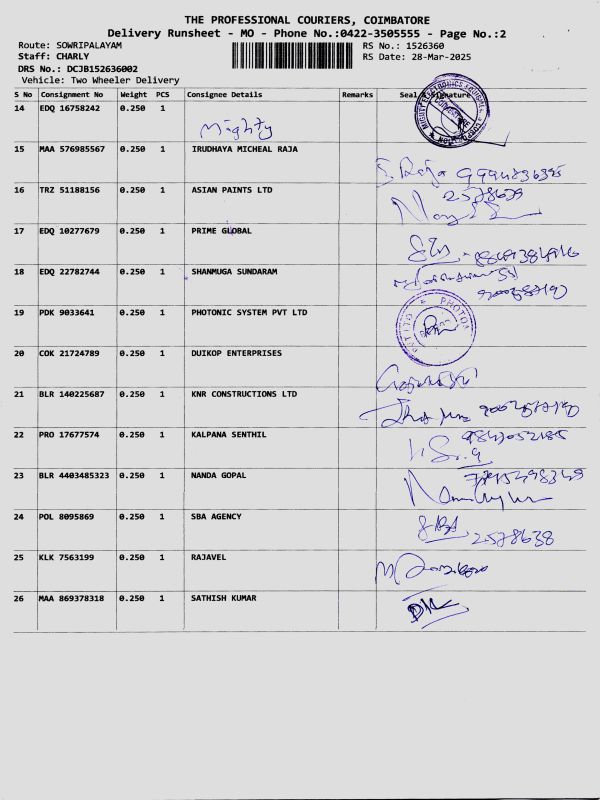 THE PROFESSIONAL COURIERS, COIMBATORE
Delivery Runsheet - MO - Phone No.:0422-3505555 - Page No.:2
Route: SOWRIPALAYAM RS No.: 1526360
Staff: CHARLY RS Date: 28-Mar-2025
DRS No.: DCJB152636002
Vehicle: Two Wheeler Delivery
S No Consignment No Weight PCS Consignee Details Remarks Seal & Signature
14 EDQ 16758242 0.250 1
Mighty
15 MAA 576985567 0.250 1 IRUDHAYA MICHEAL RAJA
S. Raja
16 TRZ 51188156 0.250 1 ASIAN PAINTS LTD
2578639
17 EDQ 10277679 0.250 1 PRIME GLOBAL
18 EDQ 22782744 0.250 1 SHANMUGA SUNDARAM
19 PDK 9033641 0.250 1 PHOTONIC SYSTEM PVT LTD
PHOTON
20 COK 21724789 0.250 1 DUIKOP ENTERPRISES
21 BLR 140225687 0.250 1 KNR CONSTRUCTIONS LTD
22 PRO 17677574 0.250 1 KALPANA SENTHIL
23 BLR 4403485323 0.250 1 NANDA GOPAL
24 POL 8095869 0.250 1 SBA AGENCY
2578638
25 KLK 7563199 0.250 1 RAJAVEL
26 MAA 869378318 0.250 1 SATHISH KUMAR